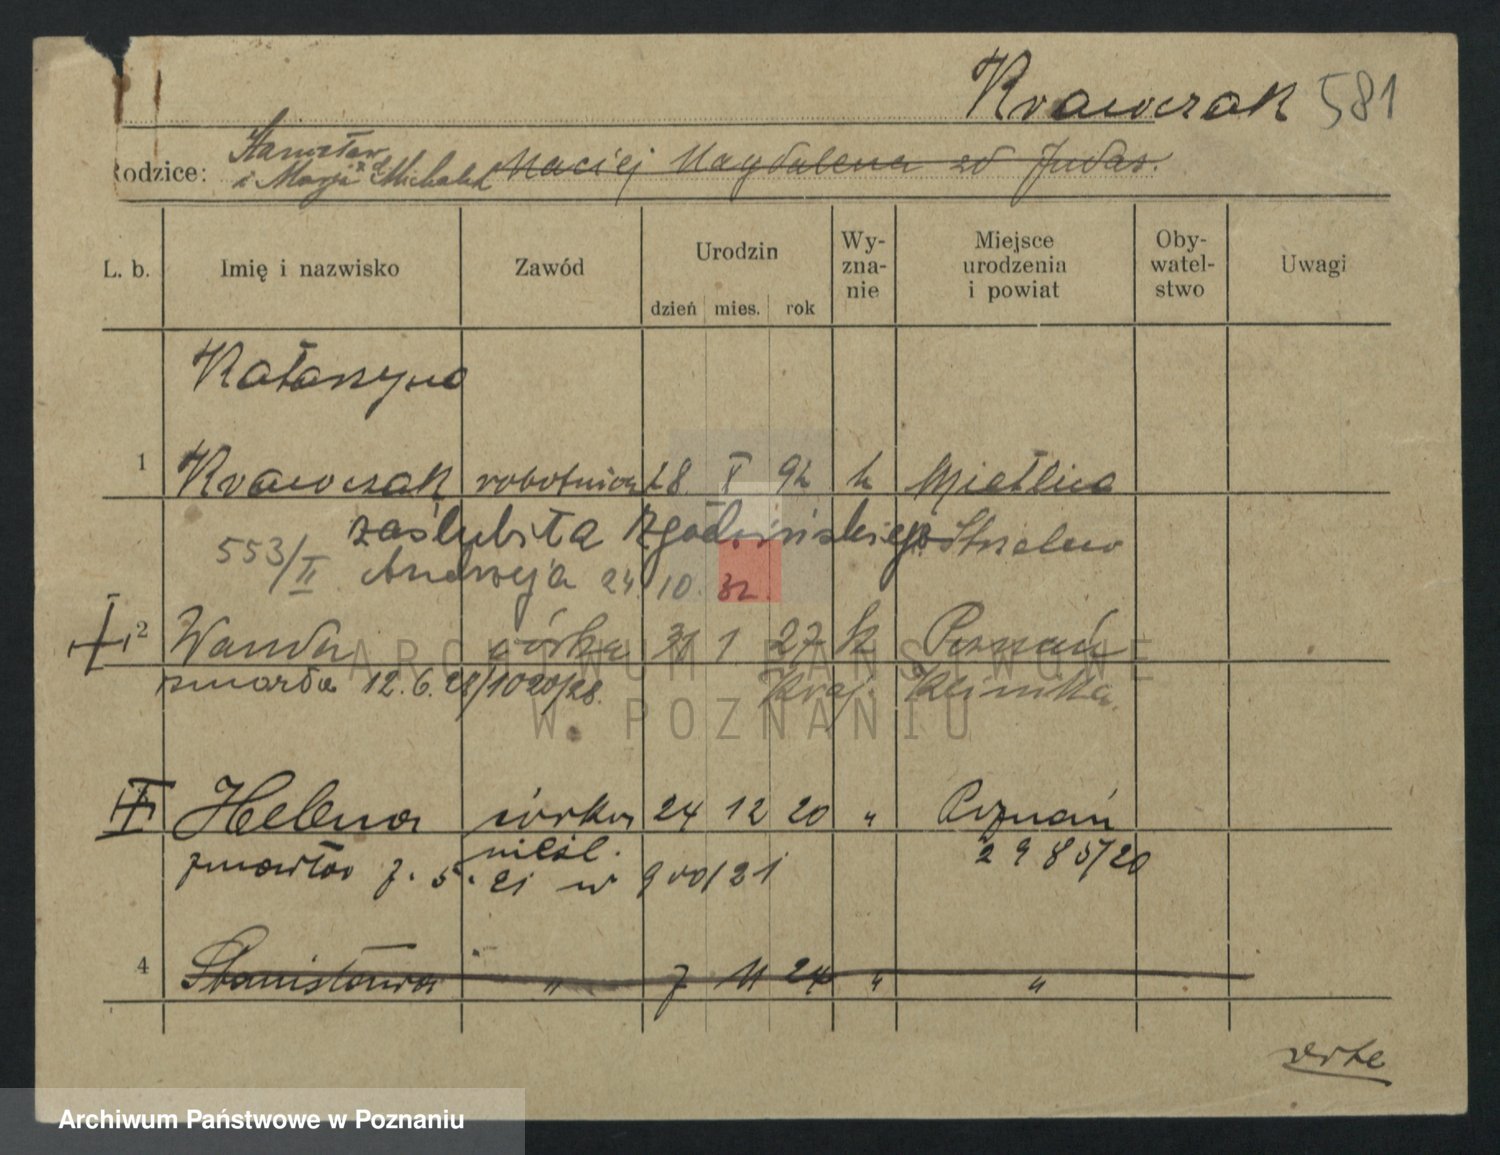 Krawczak 581
Stanisław
Rodzice: i Marja zd Michalak Maciej Magdalena zd Judas.
L. b. Imię i nazwisko Zawód Urodzin dzień mies. rok Wy-zna-nie Miejsce urodzenia i powiat Oby-watel-stwo Uwagi
Katarzyna
1 Krawczak robotnica 28 X 92 k Mietlica
zaślubiła Zgodzińskiego Strzelno
553/II Andrzeja 24.10.32.
2 Wanda córka 31 1 27 k Poznań
zmarła 12.6.28/1020/28. Kraj. Klinika
Helena córka 24 12 20 " Poznań
nieśl. 2985/20
zmarła 7.5.21 w 900/21
4 Stanisława " 7 11 24 " "
verte
ARCHIWUM PAŃSTWOWE
W POZNANIU
Archiwum Państwowe w Poznaniu